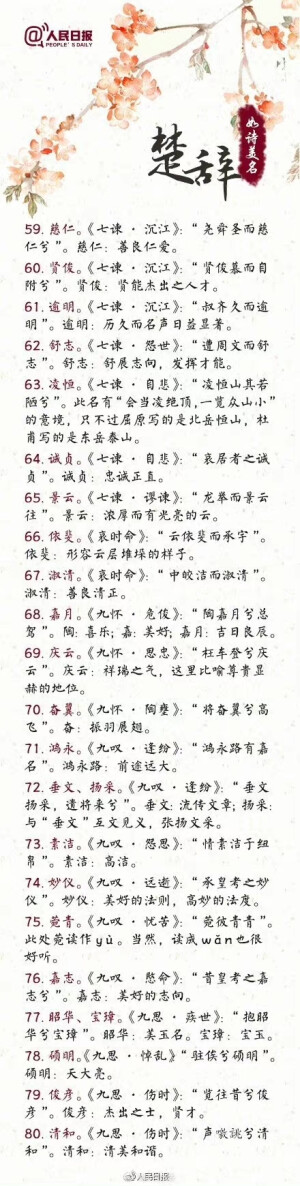 @人民日报
PEOPLE'S DAILY
楚辞
如诗美名
59. 慈仁。《七谏·沉江》：“尧舜圣而慈
仁兮”。慈仁：善良仁爱。
60. 贤俊。《七谏·沉江》：“贤俊慕而自
附兮”。贤俊：贤能杰出之人才。
61. 逾明。《七谏·沉江》：“叔齐久而逾
明”。逾明：历久而名声日益显著。
62. 舒志。《七谏·怨世》：“遭周文而舒
志”。舒志：舒展志向，发挥才能。
63. 凌恒。《七谏·自悲》：“凌恒山其若
陋兮”。此名有“会当凌绝顶，一览众山小”
的意境，只不过屈原写的是北岳恒山，杜
甫写的是东岳泰山。
64. 诚贞。《七谏·自悲》：“哀居者之诚
贞”。诚贞：忠诚正直。
65. 景云。《七谏·谬谏》：“龙举而景云
往”。景云：浓厚而有光亮的云。
66. 依斐。《哀时命》：“云依斐而承宇”。
依斐：形容云层堆垛的样子。
67. 淑清。《哀时命》：“中皎洁而淑清”。
淑清：善良清正。
68. 嘉月。《九怀·危俊》：“陶嘉月兮总
驾”。陶：喜乐；嘉：美好；嘉月：吉日良辰。
69. 庆云。《九怀·思忠》：“枉车登兮庆
云”。庆云：祥瑞之气，这里比喻尊贵显
赫的地位。
70. 奋翼。《九怀·陶壅》：“将奋翼兮高
飞”。奋：振羽展翅。
71. 鸿永。《九叹·逢纷》：“鸿永路有嘉
名”。鸿永路：前途远大。
72. 垂文、扬采。《九叹·逢纷》：“垂文
扬采，遗将来兮”。垂文：流传文章；扬采：
与“垂文”互文见义，张扬文采。
73. 素洁。《九叹·怨思》：“情素洁于纽
帛”。素洁：高洁。
74. 妙仪。《九叹·远逝》：“承皇考之妙
仪”。妙仪：美好的法则，高妙的法度。
75. 菀青。《九叹·忧苦》：“菀彼青青”。
此处菀读作yù。当然，读成wǎn也很
好听。
76. 嘉志。《九叹·愍命》：“昔皇考之嘉
志兮”。嘉志：美好的志向。
77. 昭华、宝璋。《九思·疾世》：“抱昭
华兮宝璋”。昭华：美玉名。宝璋：宝玉。
78. 硕明。《九思·悼乱》“驻俟兮硕明”。
硕明：天大亮。
79. 俊彦。《九思·伤时》：“览往昔兮俊
彦”。俊彦：杰出之士，贤才。
80. 清和。《九思·伤时》：“声噭誂兮清
和”。清和：清美和谐。
@人民日报